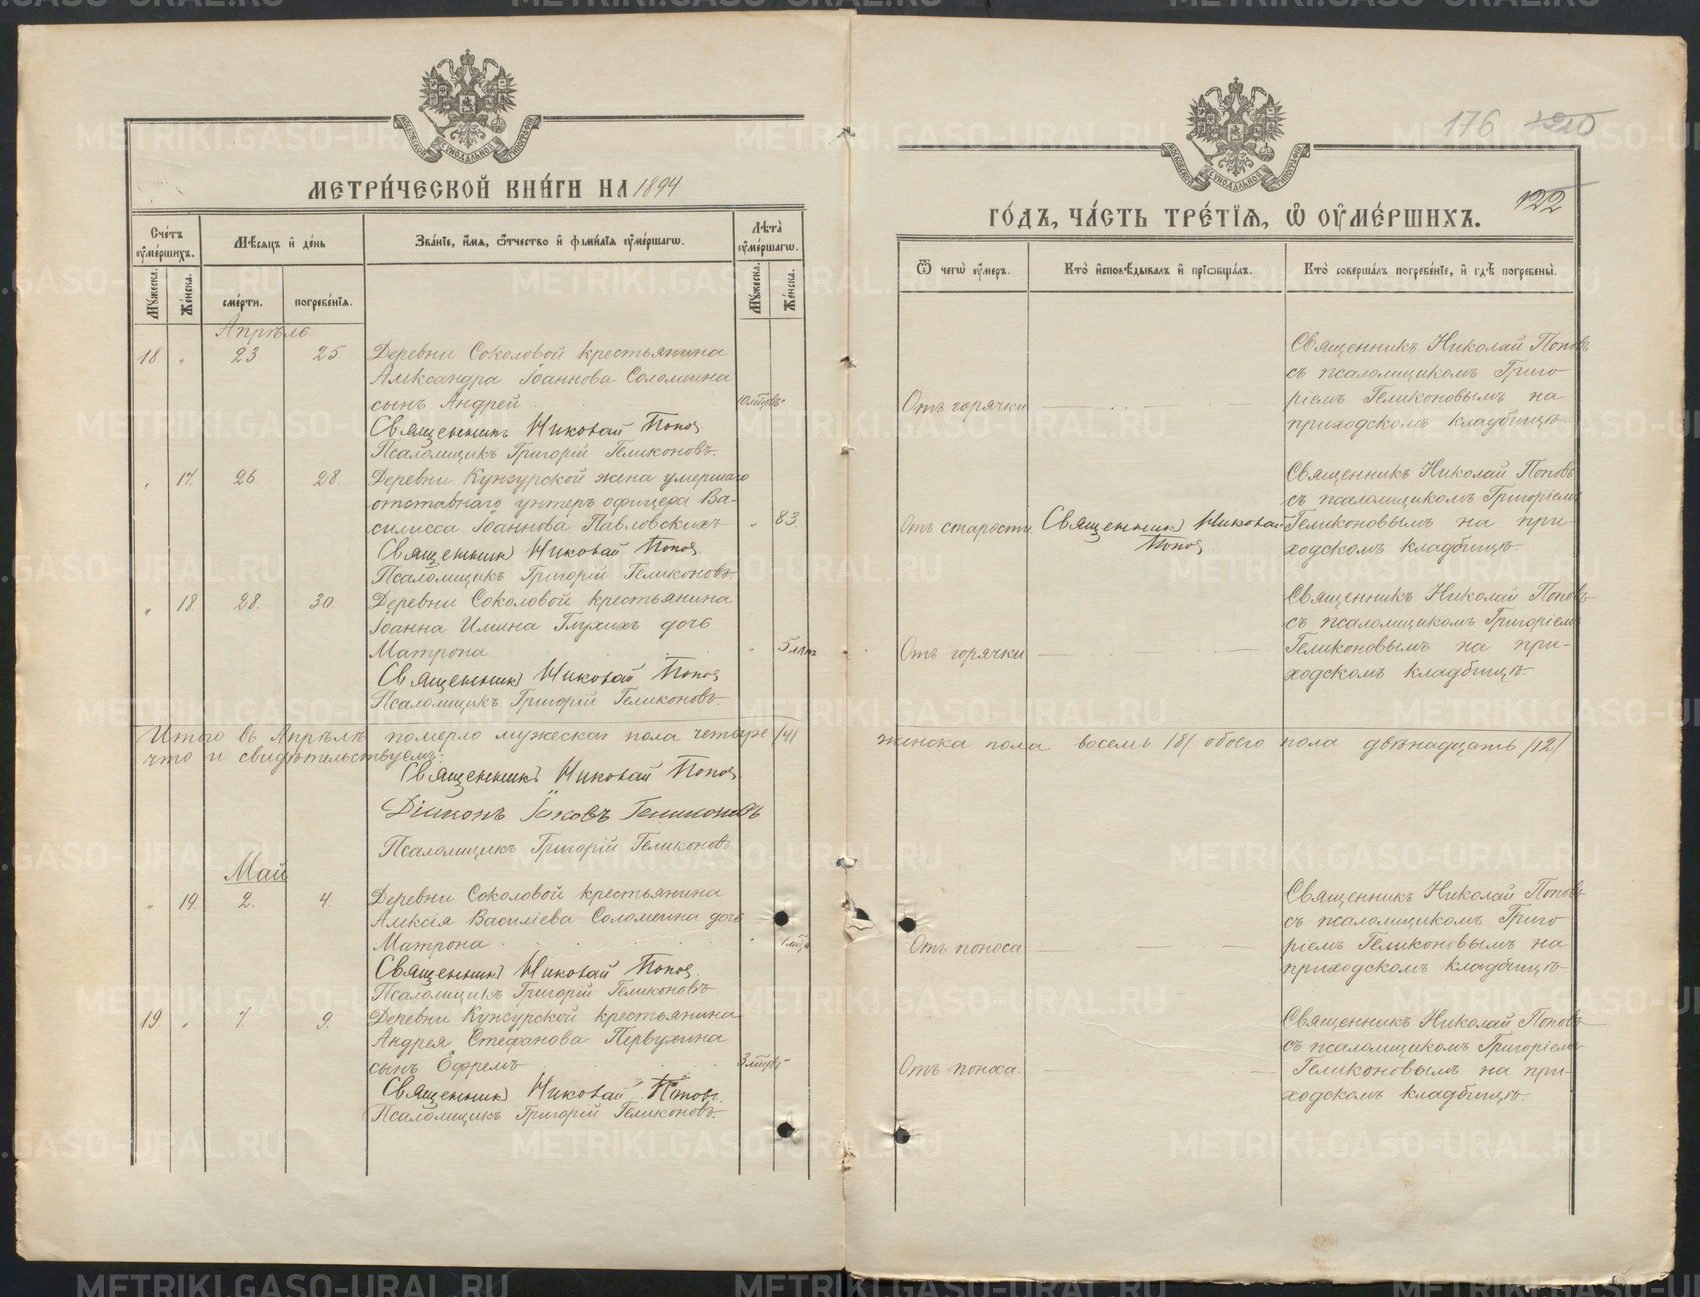 МЕТРИ́ЧЕСКОЙ КНИ́ГИ НА 1894
Сче́тъ ᲂу҆ме́ршихъ.
Мѣ́сяцъ и҆ де́нь
Зва́нїе, и҆́мя, ѻ҆́тчество и҆ фами́лїя ᲂу҆ме́ршагѡ.
Лѣта̀ ᲂу҆ме́ршагѡ.
Мꙋ́жеска.
Же́нска.
сме́рти.
погребе́нїя.
Мꙋ́жеска.
Же́нска.
Апрѣль
18 " 23 25 Деревни Соколовой крестьянина
Александра Іоаннова Соломеина
сынъ Андрей
Священникъ Николай Поповъ
Псаломщикъ Григорій Геликоновъ.
" 17. 26 28. Деревни Кунгурской жена умершаго
отставнаго унтеръ офицера Ва-
силисса Іоаннова Павловскихъ " 83.
Священникъ Николай Поповъ
Псаломщикъ Григорій Геликоновъ.
" 18. 28. 30. Деревни Соколовой крестьянина
Іоанна Глухихъ дочь
Матрона " 5 лѣтъ
Священникъ Николай Поповъ
Псаломщикъ Григорій Геликоновъ.
Итого въ Апрѣлѣ померло мужеска пола четыре /4/
что и свидѣтельствуемъ:
Священникъ Николай Поповъ
Діаконъ Іаковъ Геликоновъ
Псаломщикъ Григорій Геликоновъ
Май
" 19. 2. 4. Деревни Соколовой крестьянина
Алексія Василіева Соломеина дочь
Матрона " 1 мѣсяца
Священникъ Николай Поповъ
Псаломщикъ Григорій Геликоновъ.
19 " 7. 9. Деревни Кунгурской крестьянина
Андрея Стефанова Первухина
сынъ Ефремъ
Священникъ Николай Поповъ
Псаломщикъ Григорій Геликоновъ.
176
122
ГО́ДЪ, ЧА́СТЬ ТРЕ́ТЇЯ, Ѡ҆ ОУ҆МЕ́РШИХЪ.
Ѿ чегѡ̀ ᲂу҆́меръ.
Кто̀ и҆сповѣ́дывалъ и҆ прїѡбща́лъ.
Кто̀ соверша́лъ погребе́нїе, и҆ гдѣ̀ погребены̀.
Отъ горячки
Священникъ Николай Поповъ
съ псаломщикомъ Григо
ріемъ Геликоновымъ на
приходскомъ кладбищѣ
Отъ старости
Священникъ Николай
Поповъ
Священникъ Николай Поповъ
съ псаломщикомъ Григоріемъ
Геликоновымъ на при-
ходскомъ кладбищѣ.
Отъ горячки
Священникъ Николай Поповъ
съ псаломщикомъ Григоріемъ
Геликоновымъ на при-
ходскомъ кладбищѣ.
женска пола восемь /8/ обоего пола двѣнадцать /12/
Отъ поноса
Священникъ Николай Поповъ
съ псаломщикомъ Григо
ріемъ Геликоновымъ на
приходскомъ кладбищѣ.
Отъ поноса.
Священникъ Николай Поповъ
съ псаломщикомъ Григоріемъ
Геликоновымъ на при-
ходскомъ кладбищѣ.
METRIKI.GASO-URAL.RU